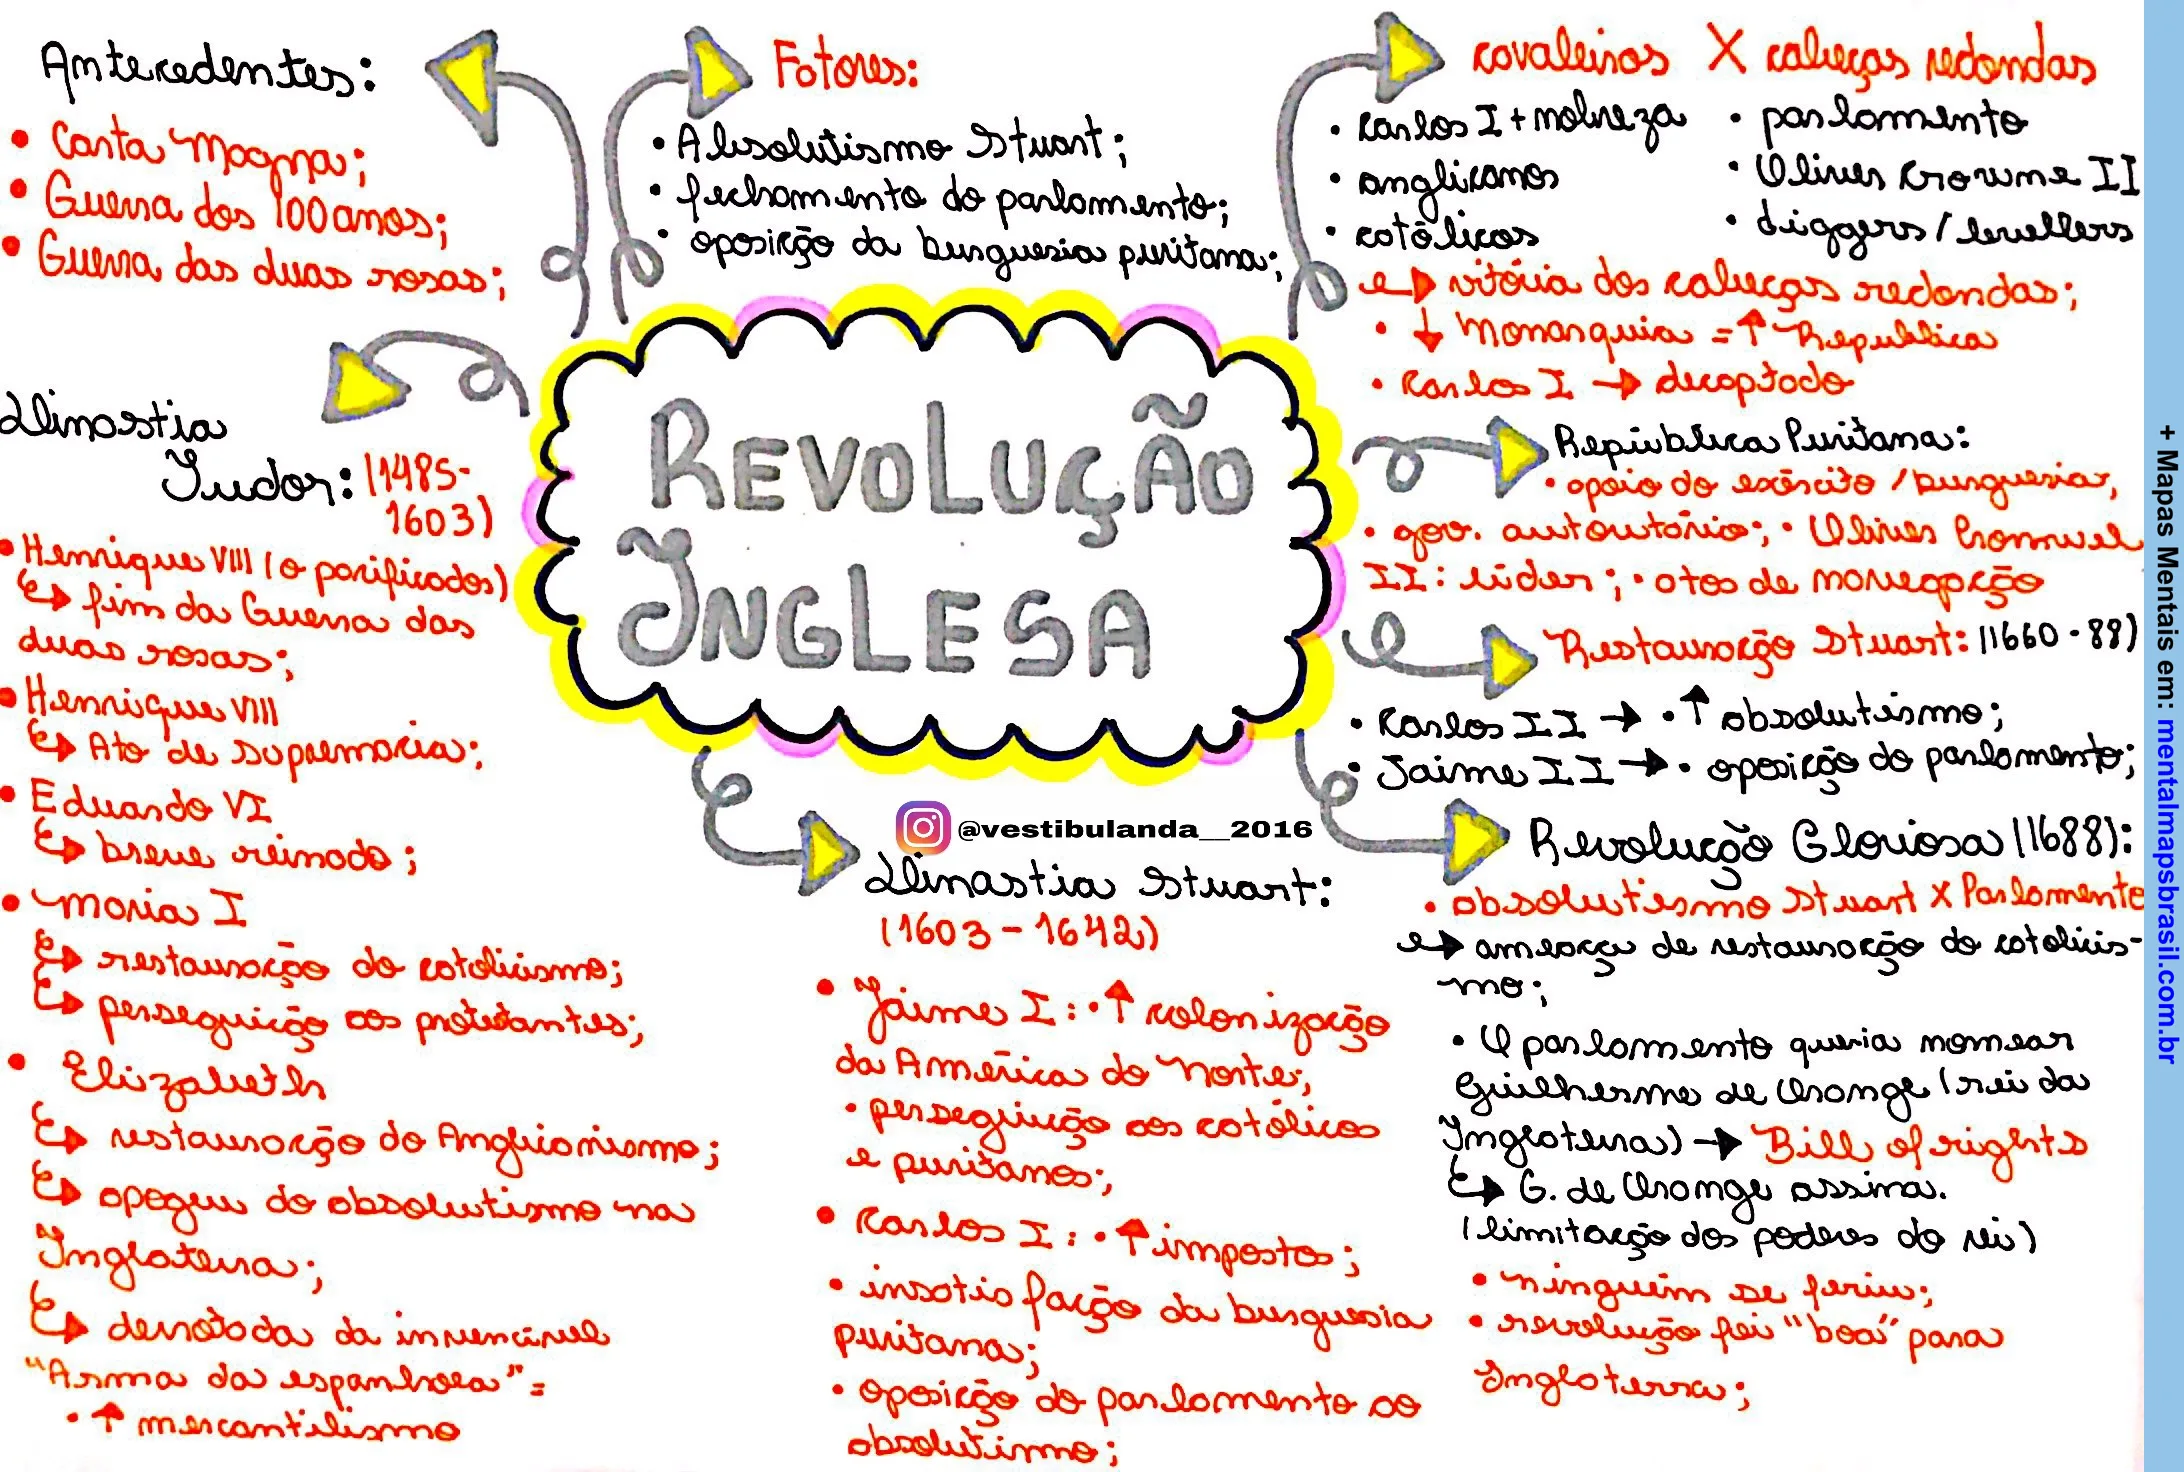 Antecedentes:
• Carta Magna;
• Guerra dos 100 anos;
• Guerra das duas rosas;
Fatores:
• Absolutismo Stuart;
• fechamento do parlamento;
• oposição da burguesia puritana;
cavaleiros X cabeças redondas
• Carlos I + nobreza
• anglicanos
• católicos
• parlamento
• Oliver Crowme II
• diggers / levellers
↳ vitória dos cabeças redondas;
• ↓ Monarquia = ↑ Republica
• Carlos I → decaptado
Dinastia
Tudor: (1485-
1603)
• Henrique VIII (o pacificados)
↳ fim da Guerra das
duas rosas;
• Henrique VIII
↳ Ato de supremacia;
• Eduardo VI
↳ breve reinado;
• Maria I
↳ restauração do catolicismo;
↳ perseguição aos protestantes;
• Elizabeth
↳ restauração do Anglicanismo;
↳ apogeu do absolutismo na
Inglaterra;
↳ derrotada da invencível
"Arma da espanhola" =
• ↑ mercantilismo
REVOLUÇÃO
INGLESA
@vestibulanda__2016
Dinastia Stuart:
(1603 - 1642)
• Jaime I: • ↑ colonização
da América do Norte;
• perseguição aos católicos
e puritanos;
• Carlos I: • ↑ impostos;
• insatisfação da burguesia
puritana;
• oposição do parlamento ao
absolutismo;
República Puritana:
• apoio do exército / burguesia,
• gov. autoritário; • Oliver Cromwel
II: líder; • atos de navegação
Restauração Stuart: (1660 - 88)
• Carlos II → • ↑ absolutismo;
• Jaime II → • oposição do parlamento;
Revolução Gloriosa (1688):
• absolutismo Stuart X Parlamento
↳ ameaça de restauração do catolicis-
mo;
• O parlamento queria nomear
Guilherme de Orange (rei da
Inglaterra) → Bill of rights
↳ G. de Orange assina.
(limitação dos poderes do rei)
• ninguém se feriu;
• revolução foi "boa" para
Inglaterra;
+ Mapas Mentais em: mentalmapsbrasil.com.br